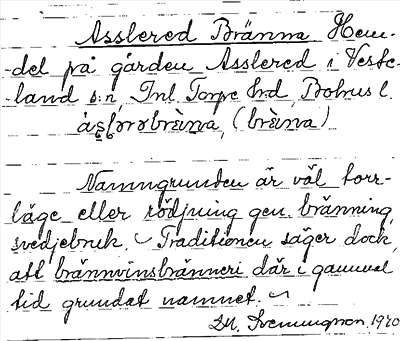 Asslered Bränna Hem-
del på gården Asslered i Veste-
land s:n, Inl. Torpe hrd, Bohus l.
(brèna)
Namngrunden är väl torr-
läge eller rödjning gen. bränning,
svedjebruk. Traditionen säger dock,
att brännvinsbränneri där i gammal
tid grundat namnet.
1940